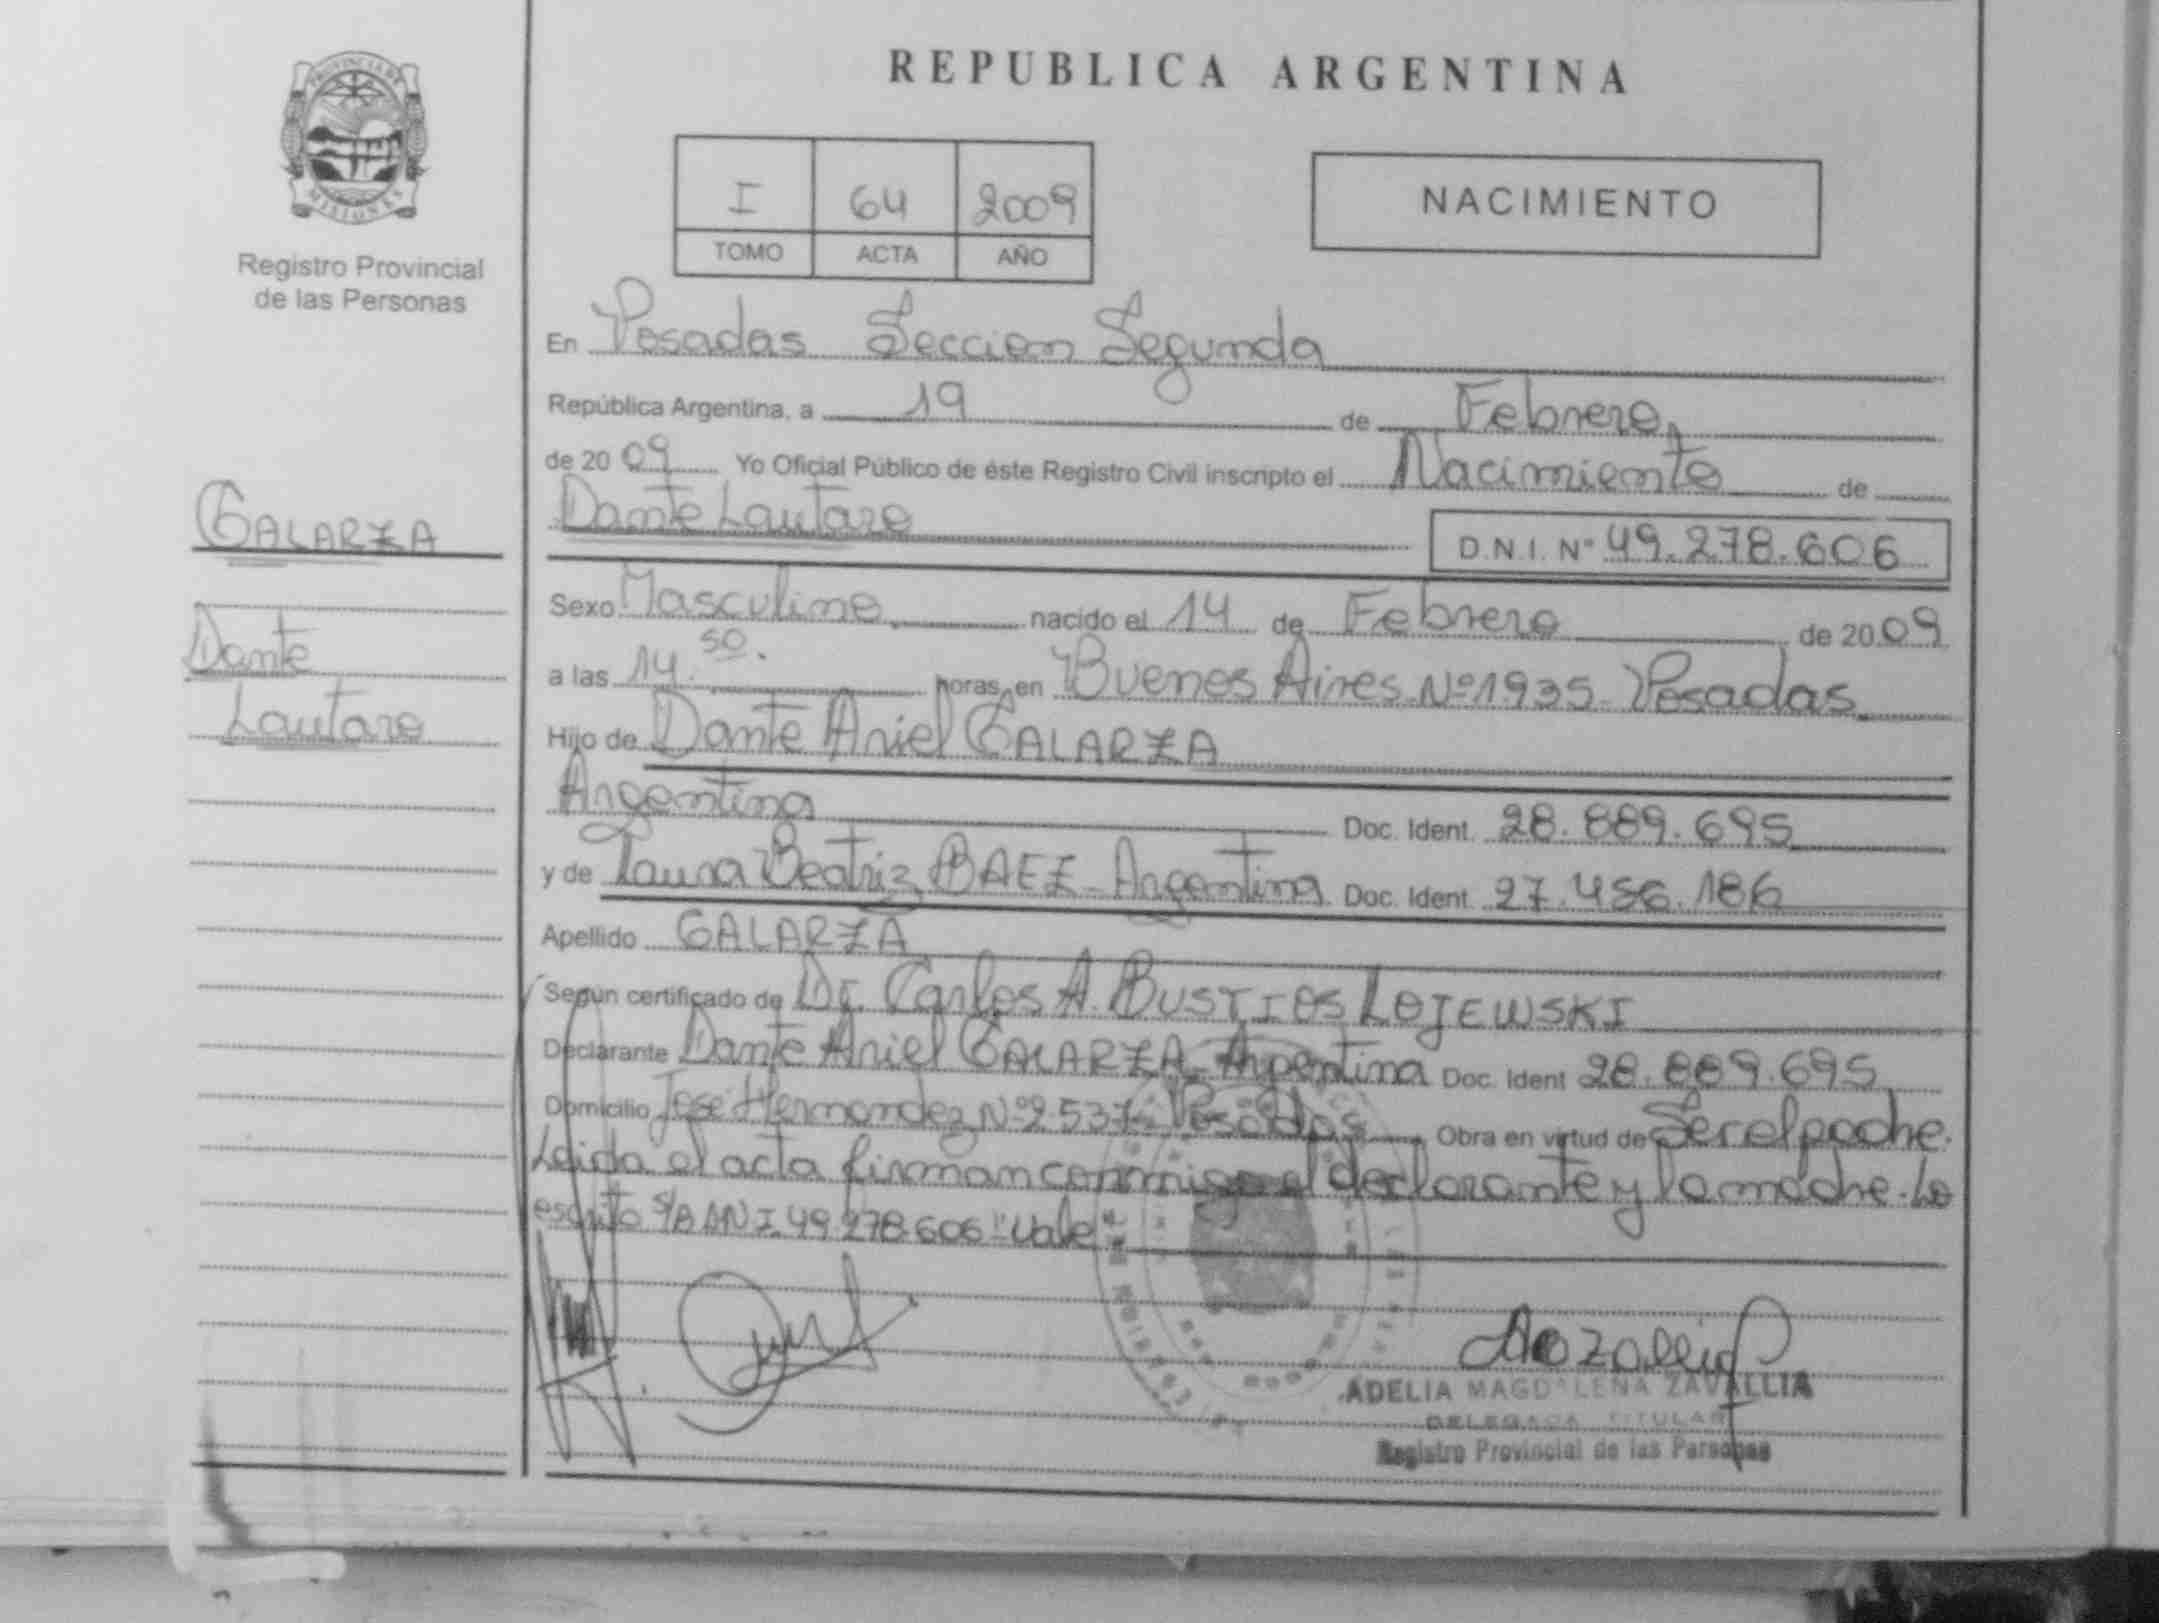 REPUBLICA ARGENTINA
PROVINCIA DE MISIONES
Registro Provincial
de las Personas
I 64 2009
TOMO ACTA AÑO
NACIMIENTO
En Posadas Seccion Segunda
República Argentina, a 19 de Febrero,
de 2009 Yo Oficial Público de éste Registro Civil inscripto el Nacimiento de
Dante Lautaro
D.N.I. Nº 49.278.606
GALARZA
Dante
Lautaro
Sexo Masculino nacido el 14 de Febrero de 2009
a las 14.50. horas, en Buenos Aires Nº 1935 - Posadas
Hijo de Dante Ariel GALARZA
Argentina Doc. Ident. 28.889.695
y de Laura Beatriz BAEZ - Argentina Doc. Ident. 27.456.186
Apellido GALARZA
Según certificado de Dr. Carlos A. BUSTIOS LOJEWSKI
Declarante Dante Ariel GALARZA Argentina Doc. Ident 28.889.695
Domicilio Jose Hernandez Nº 2537 - Posadas Obra en virtud de Ser el padre.
Leida el acta firman conmigo el declarante y la madre. Lo
escrito S/B DNI 49.278.606 "Vale"
ADELIA MAGDALENA ZAVALLIA
DELEGADA TITULAR
Registro Provincial de las Personas